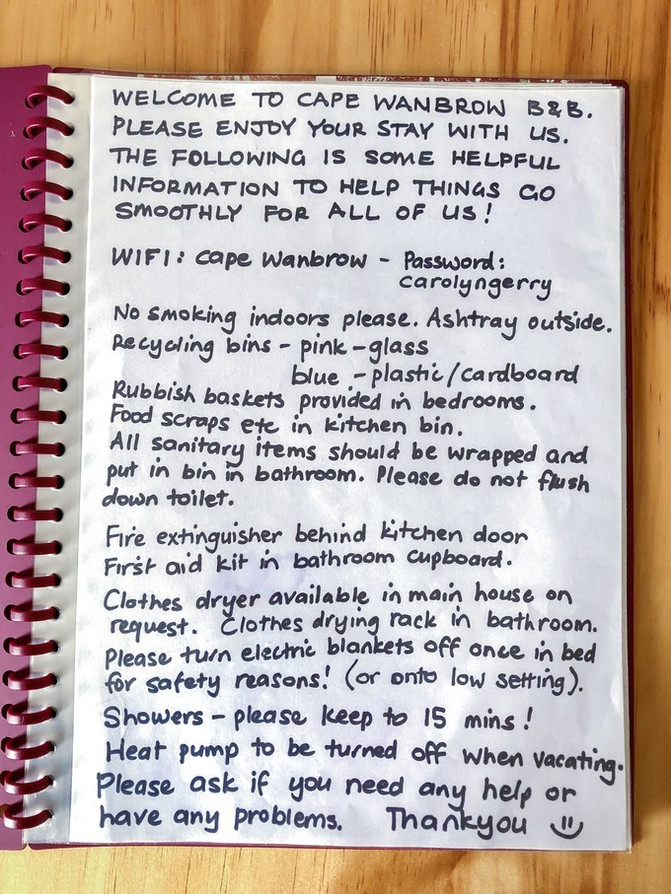 WELCOME TO CAPE WANBROW B&B.
PLEASE ENJOY YOUR STAY WITH US.
THE FOLLOWING IS SOME HELPFUL
INFORMATION TO HELP THINGS GO
SMOOTHLY FOR ALL OF US!
WIFI: Cape Wanbrow - Password:
carolyngerry
No smoking indoors please. Ashtray outside.
Recycling bins - pink - glass
blue - plastic/cardboard
Rubbish baskets provided in bedrooms.
Food scraps etc in kitchen bin.
All sanitary items should be wrapped and
put in bin in bathroom. Please do not flush
down toilet.
Fire extinguisher behind kitchen door
First aid kit in bathroom cupboard.
Clothes dryer available in main house on
request. Clothes drying rack in bathroom.
Please turn electric blankets off once in bed
for safety reasons! (or onto low setting).
Showers - please keep to 15 mins!
Heat pump to be turned off when vacating.
Please ask if you need any help or
have any problems. Thankyou